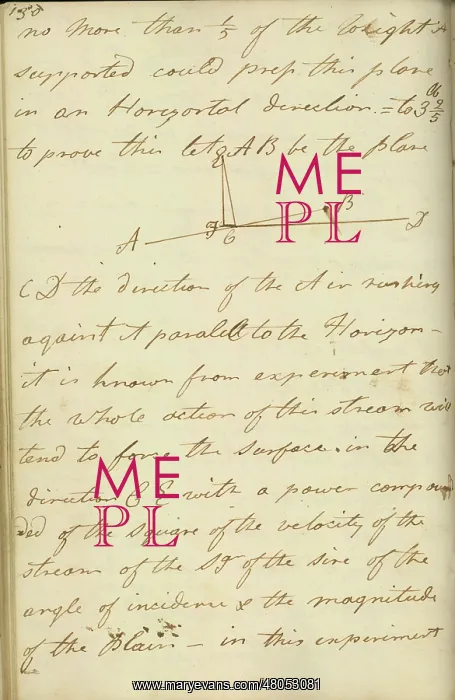 no more than 1/5 of the weight
supported could press this plane
in an Horizontal direction = to 3 2/5 lb
to prove this let AB be the plane
E
B
F
C
D
A
CD the direction of the Air rushing
against it paralell to the Horizon –
it is known from experiment that
the whole action of this stream will
tend to force the surface in the
direction C E with a power compoun
ded of the square of the velocity of the
stream of the Sq of the sine of the
angle of incidence & the magnitude
of the Plain – in this experiment
ME
PL
ME
PL
www.maryevans.com/48053081